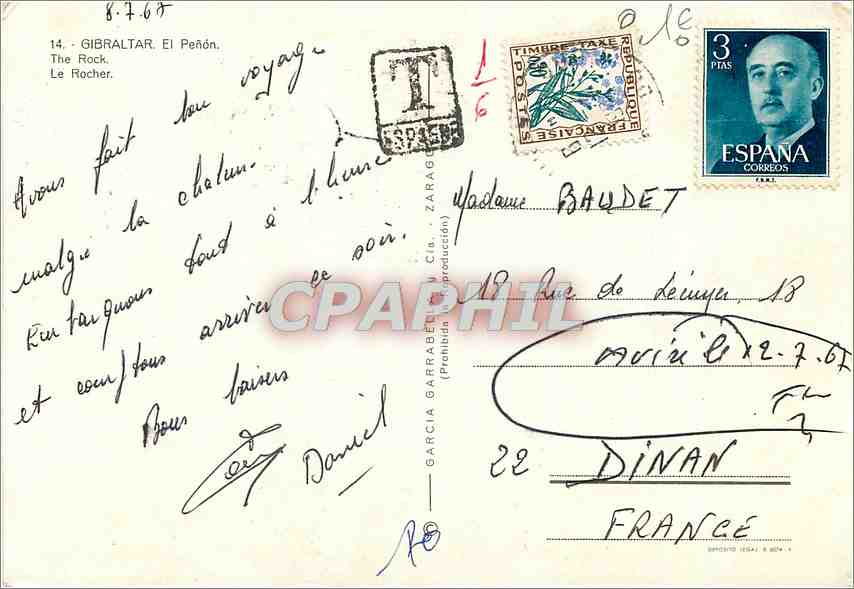 8.7.67
14. - GIBRALTAR. El Peñón.
The Rock.
Le Rocher.
Avons fait bon voyage
malgré la chaleur.
Embarquons tout à l'heure
et comptons arriver ce soir.
Bons baisers
Daniel
T
ESPAGNE
1/6
TIMBRE TAXE
REPUBLIQUE
FRANÇAISE
POSTES
3
PTAS
ESPAÑA
CORREOS
F.N.M.T.
GARCIA GARRABELLA y Cía. - ZARAGO
(Prohibida la Reproducción)
CPAPHIL
Madame BAUDET
18 Rue de 18
Avisé le 12.7.67
22 DINAN
FRANCE
DEPOSITO LEGAL B.